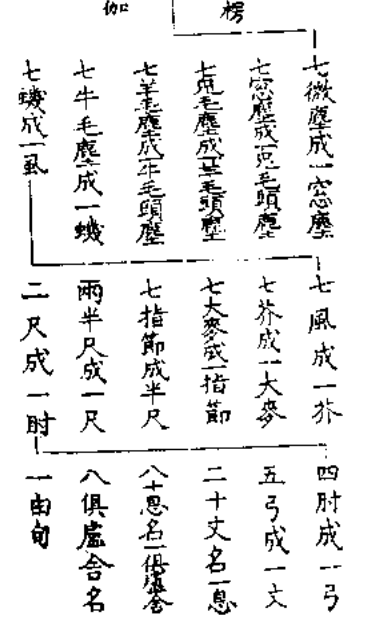 楞
伽
七微塵成一窓塵
七窓塵成一兎毛頭塵
七兎毛塵成一羊毛頭塵
七羊毛塵成一牛毛頭塵
七牛毛塵成一蟣
七蟣成一虱
七風成一芥
七芥成一大麥
七大麥成一指節
七指節成半尺
兩半尺成一尺
二尺成一肘
四肘成一弓
五弓成一丈
二十丈名一息
八十息名一俱盧舍
八俱盧舍名
一由旬